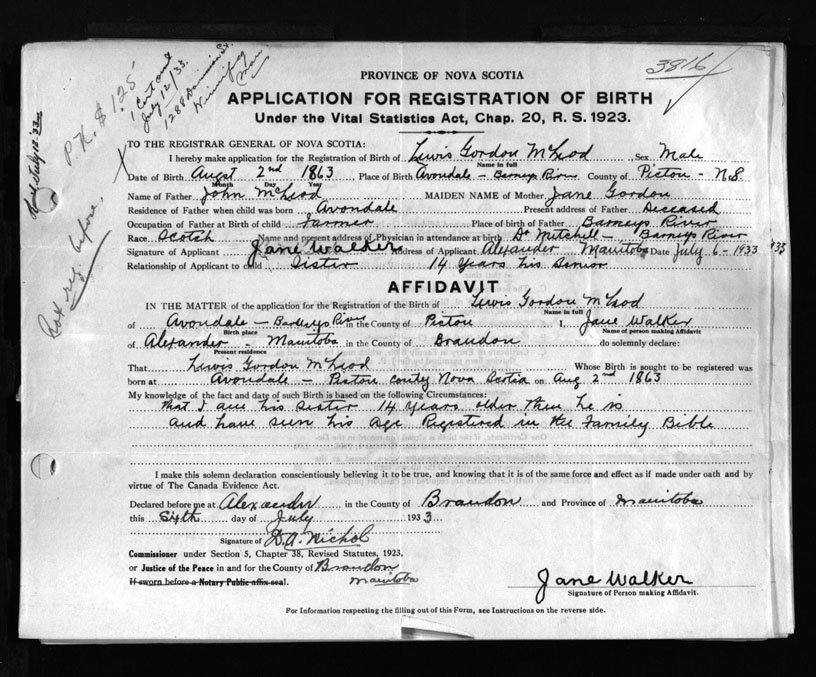 3816
P.K. $1.25
1 Cert sent
July 12/33
Winnipeg
Man
PROVINCE OF NOVA SCOTIA
APPLICATION FOR REGISTRATION OF BIRTH
Under the Vital Statistics Act, Chap. 20, R. S. 1923.
TO THE REGISTRAR GENERAL OF NOVA SCOTIA:
I hereby make application for the Registration of Birth of Lewis Gordon McLeod Sex Male
Name in full
Date of Birth Augst 2nd 1863 Place of Birth Avondale – Barneys River County of Pictou – N.S
Month Day Year
Name of Father John McLeod MAIDEN NAME of Mother Jane Gordon
Residence of Father when child was born Avondale Present address of Father Deceased
Occupation of Father at Birth of child Farmer Place of birth of Father Barneys River
Race Scotch Name and present address of Physician in attendance at birth Dr Mitchell – Barneys River
Signature of Applicant Jane Walker Address of Applicant Alexander Manitoba Date July 6 – 1933
Relationship of Applicant to child Sister 14 Years his Senior
AFFIDAVIT
IN THE MATTER of the application for the Registration of the Birth of Lewis Gordon McLeod
Name in full
of Avondale – Barneys River in the County of Pictou I, Jane Walker
Birth place Name of person making Affidavit
of Alexander – Manitoba in the County of Brandon do solemnly declare:
Present residence
That Lewis Gordon McLeod Whose Birth is sought to be registered was
born at Avondale – Pictou County Nova Scotia on Aug 2nd 1863
My knowledge of the fact and date of such Birth is based on the following Circumstances:
that I am his Sister 14 Years older then he is
and have seen his age Registered in the Family Bible
I make this solemn declaration conscientiously believing it to be true, and knowing that it is of the same force and effect as if made under oath and by
virtue of The Canada Evidence Act.
Declared before me at Alexander in the County of Brandon and Province of Manitoba
this Sixth day of July 1933
Signature of D.A. Nichol
Commissioner under Section 5, Chapter 38, Revised Statutes, 1923,
or Justice of the Peace in and for the County of Brandon
If sworn before a Notary Public affix seal. Manitoba
Jane Walker
Signature of Person making Affidavit.
For Information respecting the filling out of this Form, see Instructions on the reverse side.
Not reg. before.